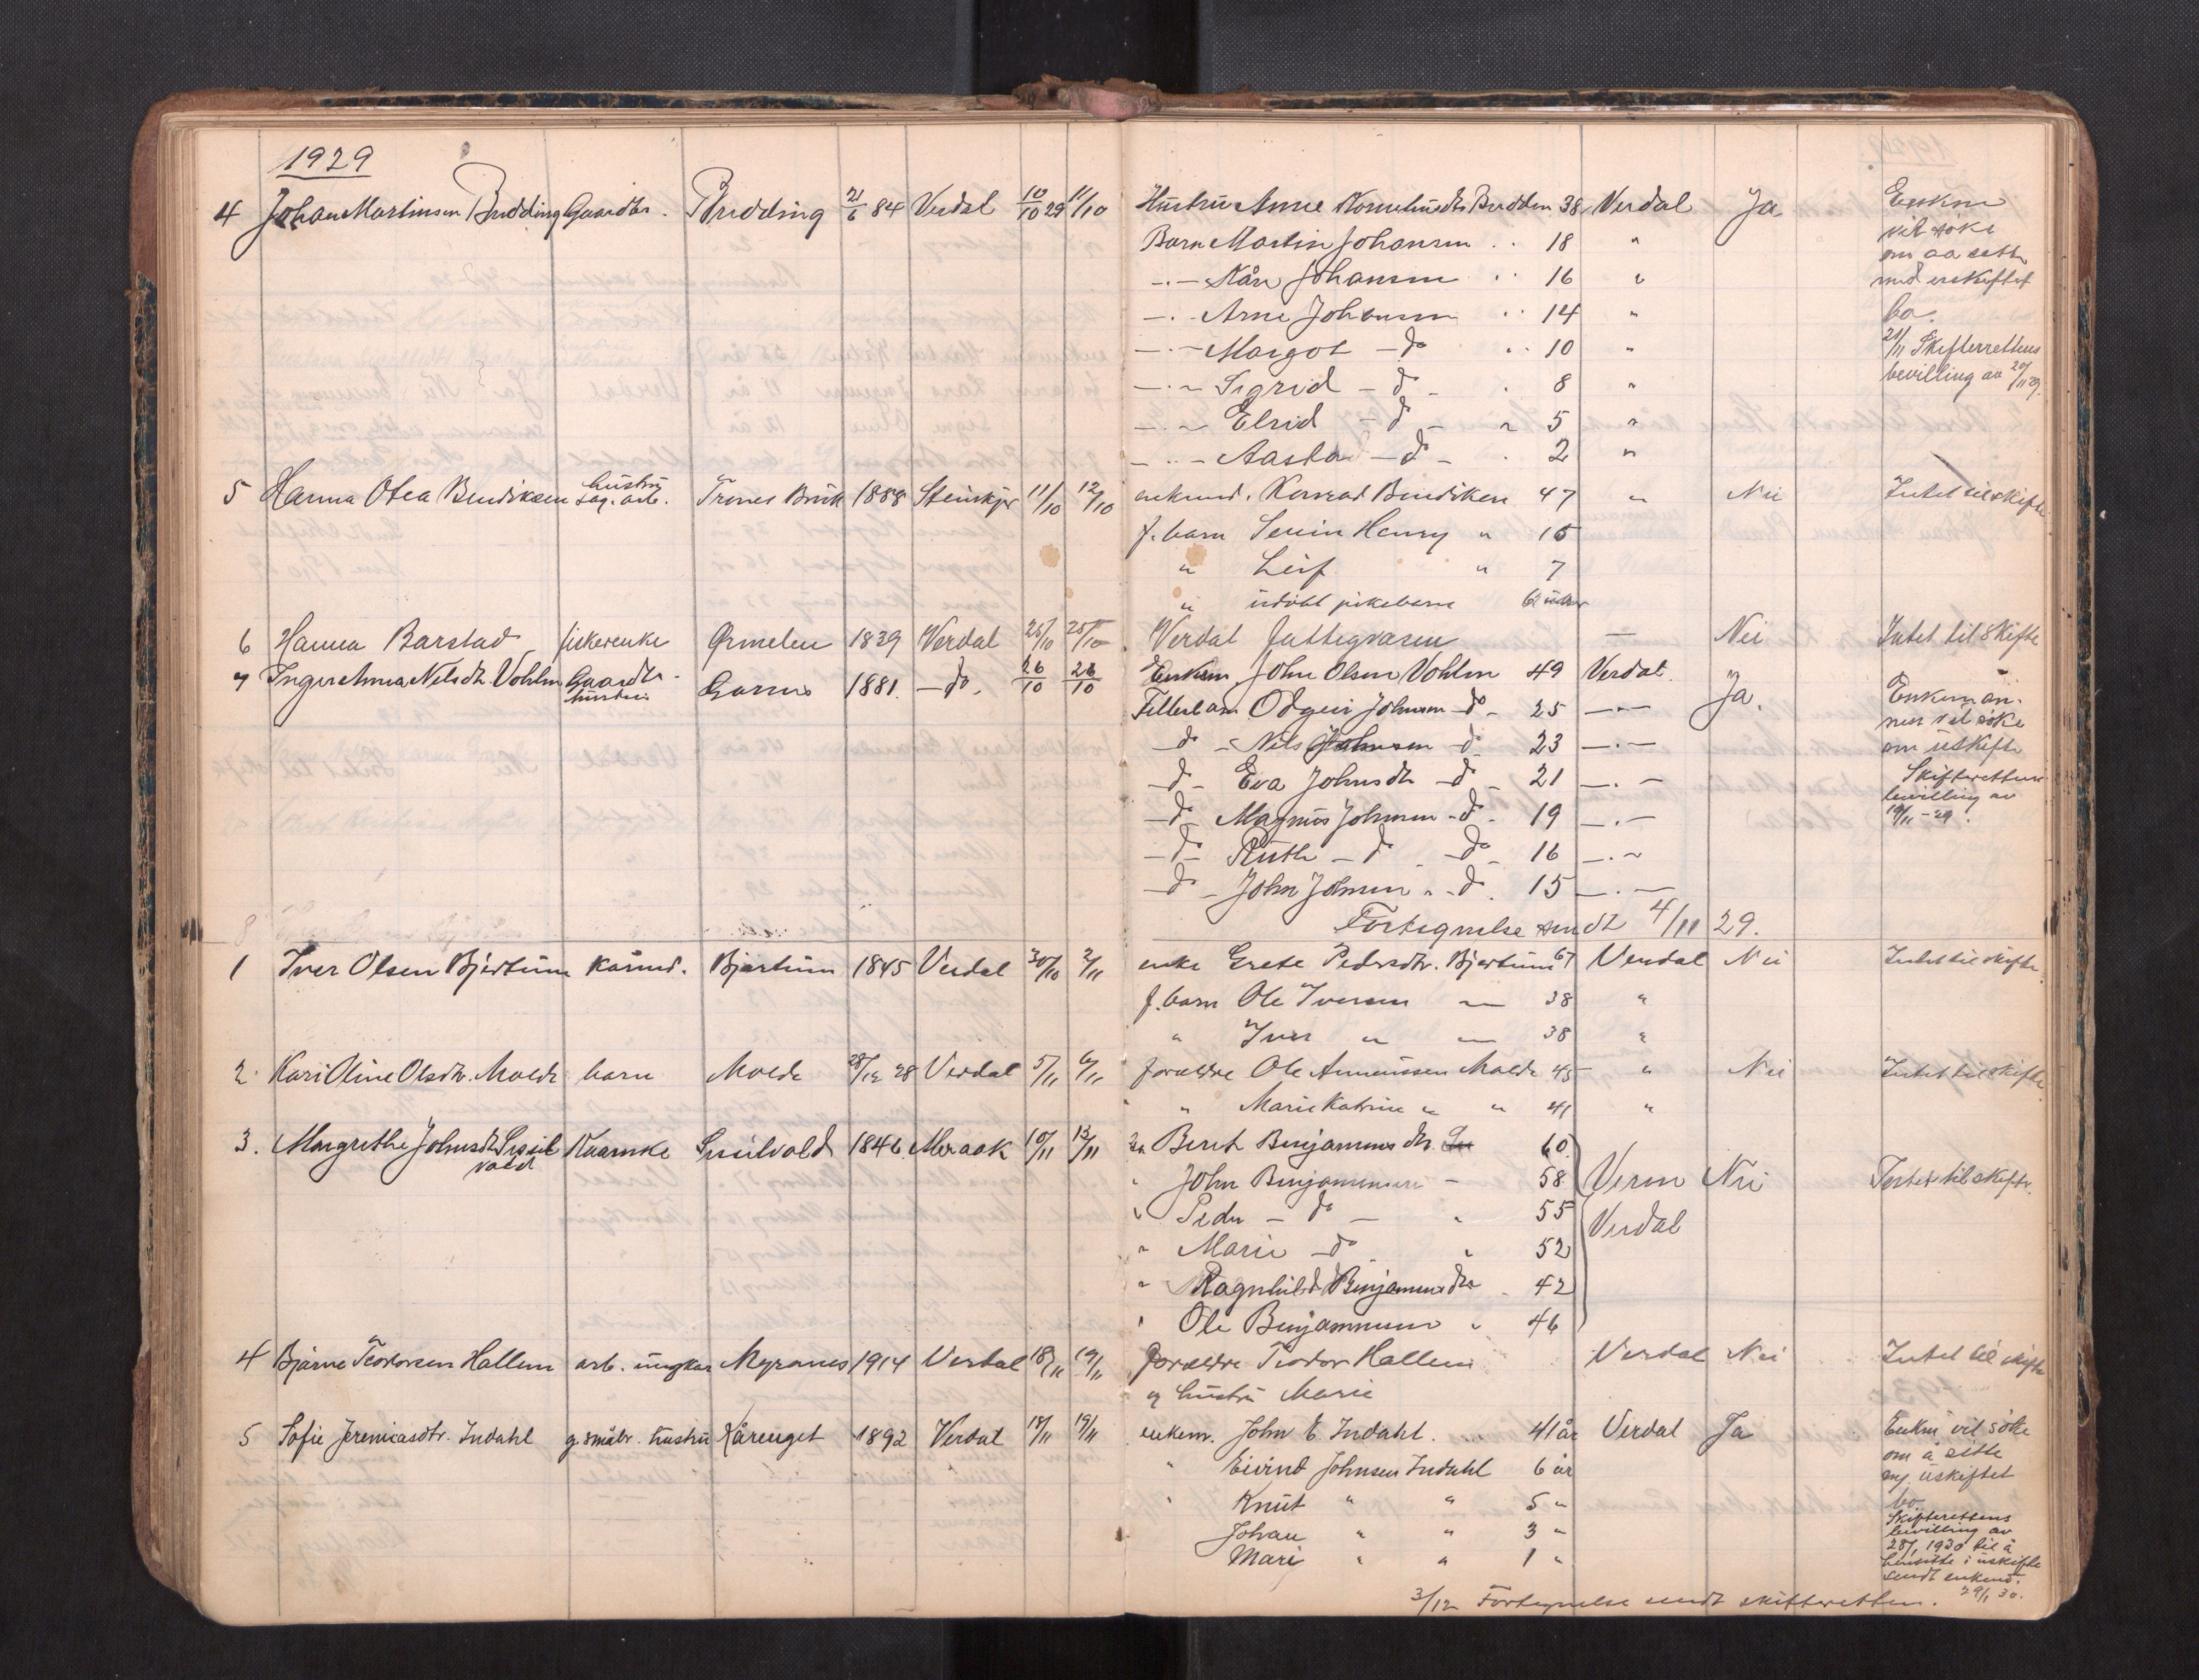 1929
4 Johan Martinsen Budding Gaardbr. Budding 21/6 84 Verdal 10/10 29 11/10 Hustru Anne Budden 38 Verdal Ja Enkem
Barn Martin Johansen 18 " vil søke
-.- Kåre Johansen 16 " om aa sitte
-.- Arne Johansen 14 " med uskiftet
bo.
-.- Margot - do 10 " 21/11 Skifterettens
-.- Sigrid - do - 8 " bevilling av 20/11 29.
-.- Elrid - do - " 5 "
-.- Aasta - do - 2 "
5 Hanna Otea Bendiksen hustru sag.arb. Trones Bruk 1888 Steinkjer 11/10 12/10 enkemd. Konrad Bendiksen 47 " Nei Intet til skifte
f. barn Henry " 15
" Leif " 7
" udøbt pikebarn 6 uker
6 Hanna Barstad fiskerenke Ørmelen 1839 Verdal 25/10 25/10 Verdal fattigvæsen — Nei Intet til skifte
7 Inger Anna Nilsdtr. Vohlen Gaardbr. hustru Garnes 1881. - do. 26/10 26/10 Enkem John Olsen Vohlen 49 Verdal. Ja. Enkeman-
Fellesbarn Odgeir Johnsen - do - 25 -.- nen vil søke
- do - Nils Johnsen - do 23 -.- om uskifte
- do - Eva Johnsdtr - do - 21 -.- Skifterettens
- do - Magnus Johnsen - do - 19 -.- bevilling av
19/11 - 29.
- do - Ruth - do - do - 16 -.-
- do - John Johnsen " - do. 15 -.-
8 Fortegnelse sendt 4/11 29.
1 Iver Olsen Bjartun kårmd. Bjartun 1845 Verdal 30/10 2/11 enke Grete Pedersdtr. Bjartun 67 Verdal Nei Intet til skifte
f. barn Ole Iversen — 38 "
" Iver " — 38 "
2. Kari Oline Olsdtr. Molde barn Molde 28/12 28 Verdal 5/11 6/11 forældre Ole Molde 45 " Nei Intet til skifte
" " Marie Katrine " " 41 "
3. Margrethe Johnsdtr Sissilvold Kaarenke Sissilvold 1846 Meraok 10/11 13/11 Beret Benjaminsdtr. 60
" John Benjaminsen - 58 Vera Nei Intet til skifte.
" Peder - do - " 55 Verdal
" Marie - do " 52
" Ragnhild Benjaminsdtr " 42
" Ole Benjaminsen " 46
4 Bjarne Teodorsen Hallem arb. ungkar Myrones 1914 Verdal 18/11 19/11 forældre Teodor Hallem Verdal Nei Intet til skifte
og hustru Marie
5 Sofie Jeremiasdtr. Indahl g. småbr. hustru Kårenget 1892 Verdal 18/11 19/11 enkem. John E. Indahl. 41 år Verdal Ja Enkem vil søke
om å sitte
" Eivind Johnsen Indahl 6 år m/ uskiftet
" Knut " " 5 " bo.
Johan " " 3 " Skifterettens
bevilling av
Mari " " 1 " 28/1 1930 til å
hensitte i uskifte
sendt enkemd.
3/12 Fortegnelse sendt skifteretten. 29/1 30.